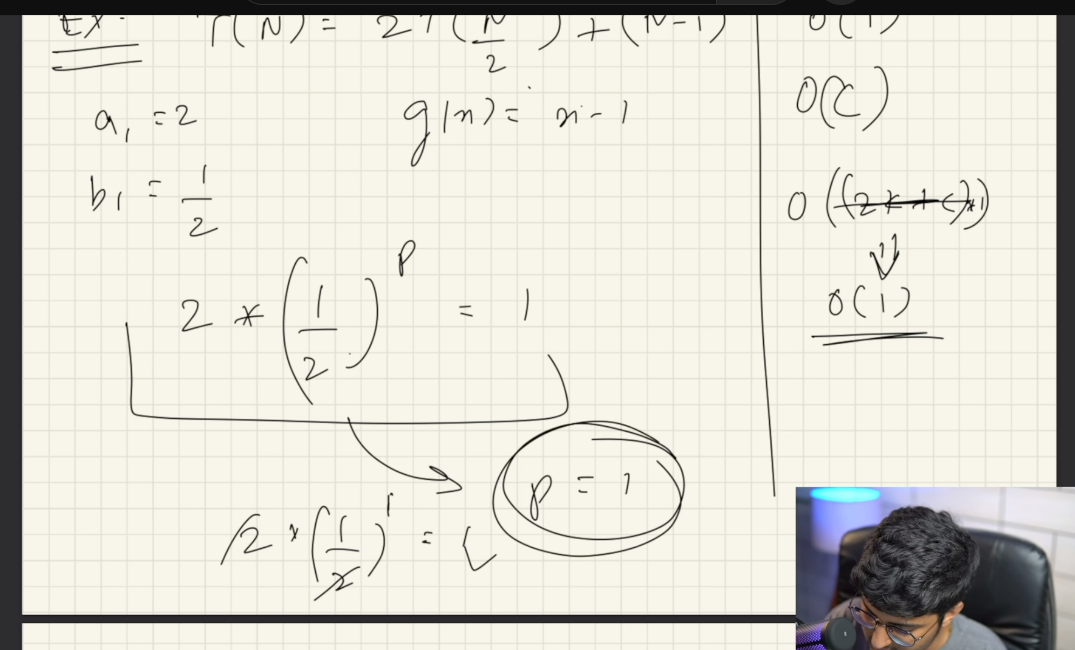 Ex: T(N) = 2T(N/2) + (N-1)
a₁ = 2
g(n) = n - 1
b₁ = 1/2
2 * (1/2)^p = 1
p = 1
2 * (1/2)^1 =
O(1)
O(C)
O((2*1+C)*1)
O(1)